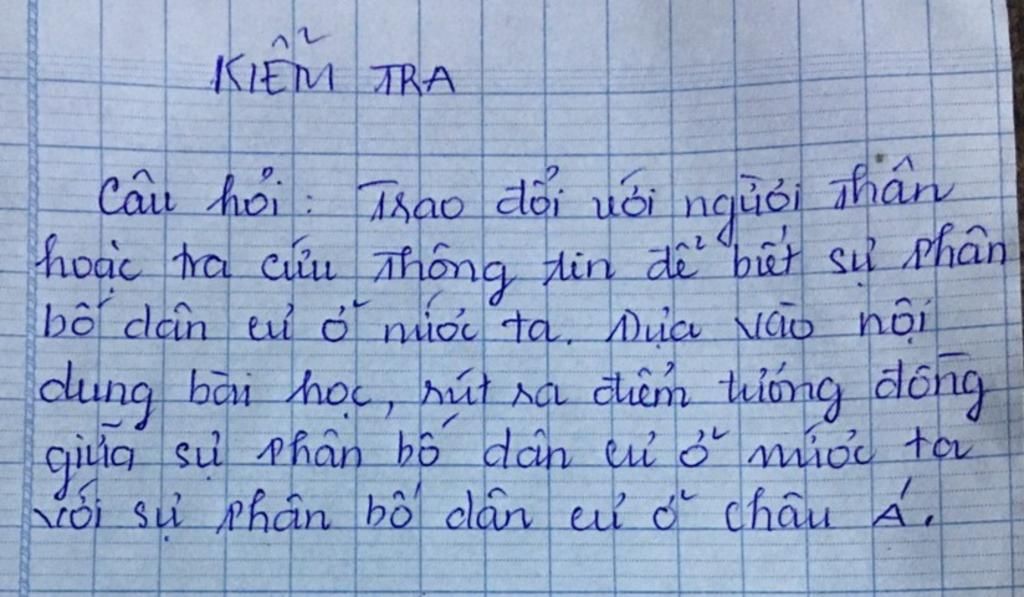 KIỂM TRA
Câu hỏi: Trao đổi với người thân
hoặc tra cứu thông tin để biết sự phân
bố dân cư ở nước ta. Dựa vào nội
dung bài học, rút ra điểm tương đồng
giữa sự phân bố dân cư ở nước ta
với sự phân bố dân cư ở châu Á.